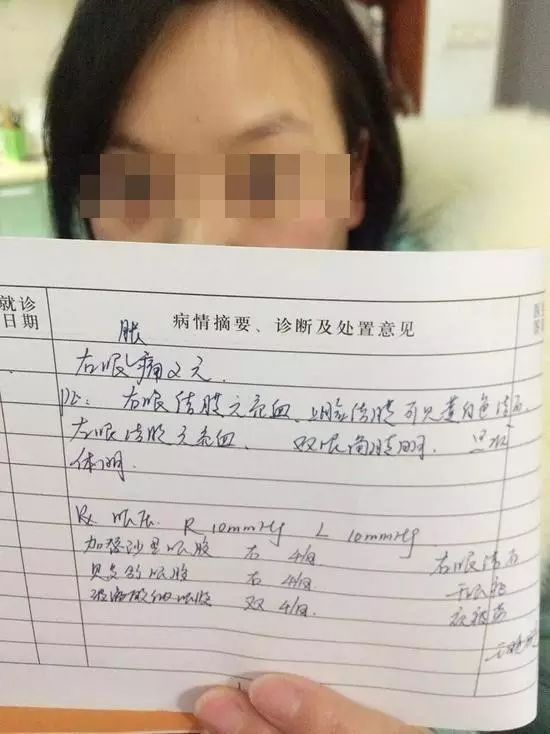 就诊
日期
病情摘要、诊断及处置意见
胀
右眼痛2天.
PE: 右眼结膜无充血、上睑结膜可见黄白色结石.
左眼结膜无充血. 双眼角膜明.
体明.
Rx 眼压 R 10mmHg L 10mmHg
加替沙星眼 右 4/日
右 4/日
玻璃酸钠 双 4/日.
右眼结石
干眼